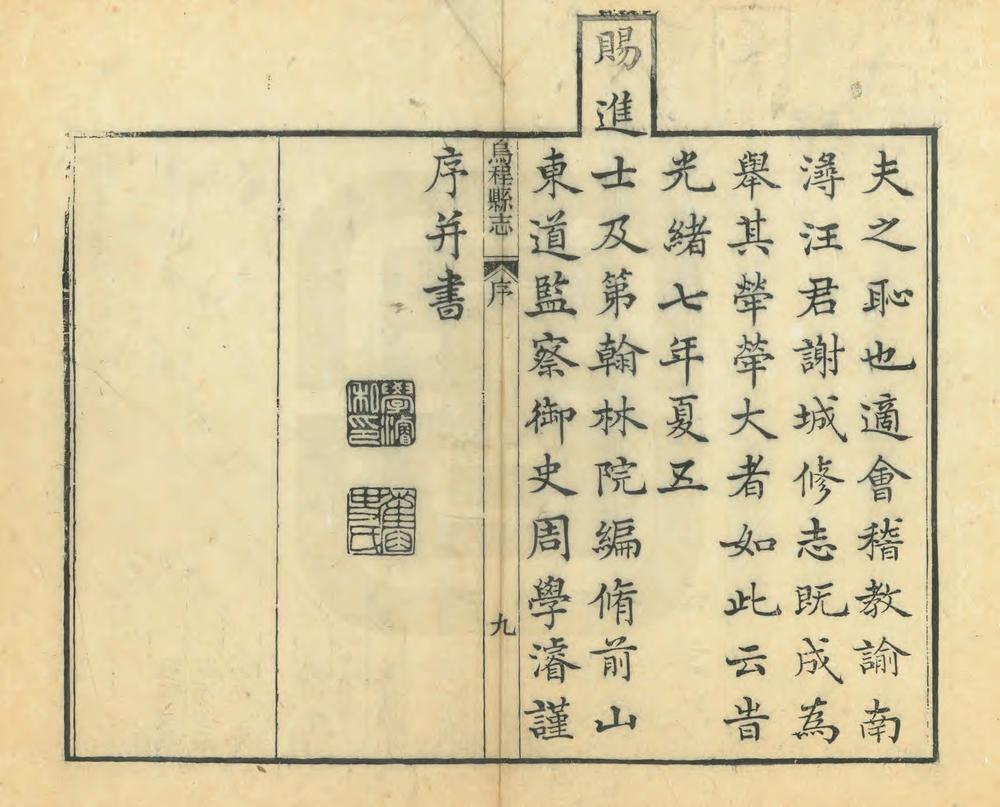 夫之恥也適會稽教諭南
潯汪君謝城修志既成為
舉其犖犖大者如此云旹
光緒七年夏五
賜進
士及第翰林院編脩前山
東道監察御史周學濬謹
烏程縣志
序
九
序并書
學濬
私印